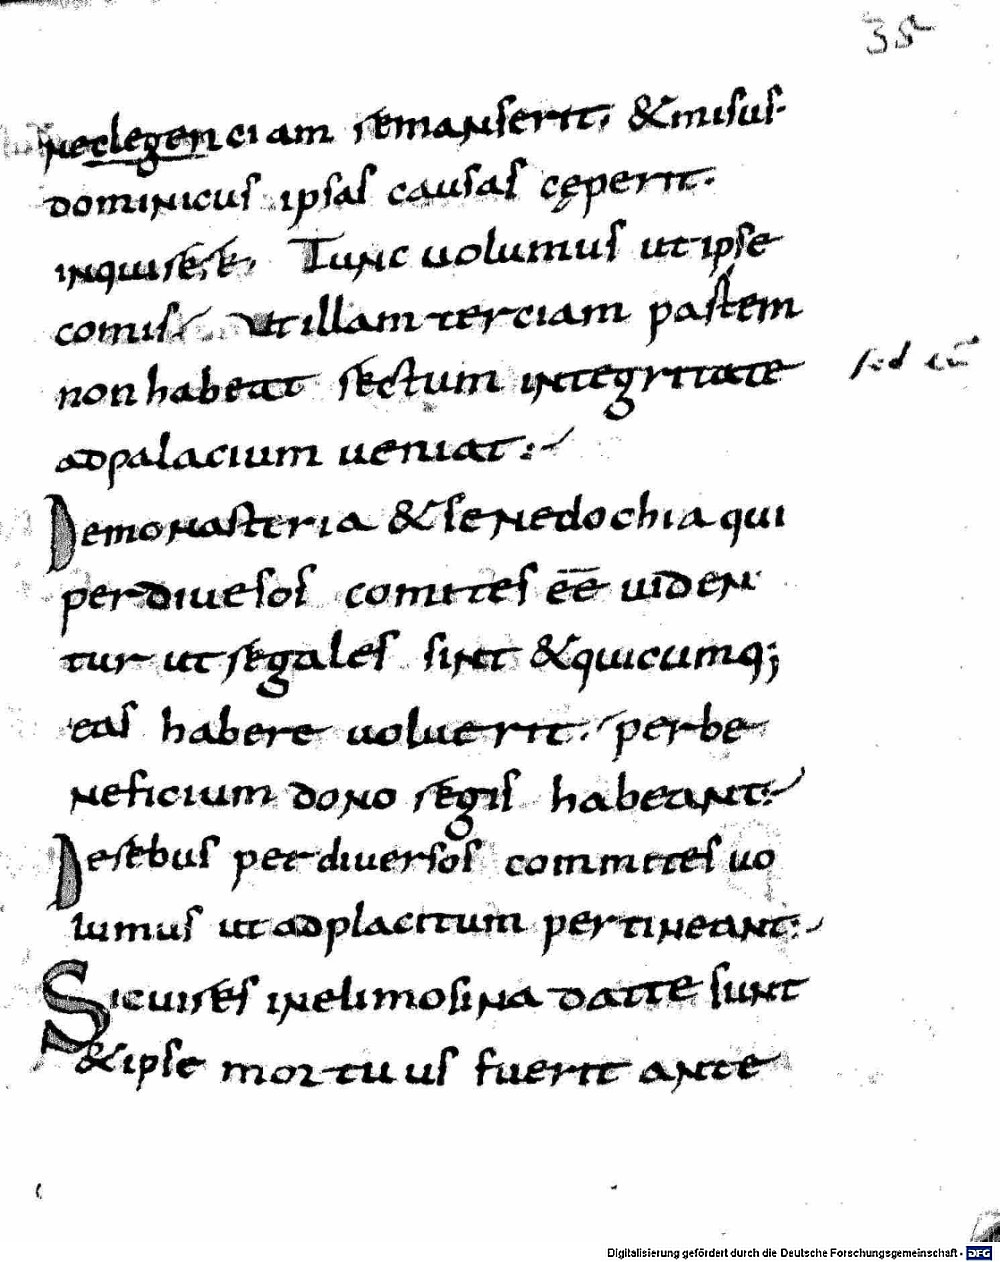 35
neclegenciam remanserit, & misus
dominicus ipsas causas cęperit
inquirere, Tunc uolumus ut ipse
comis ut illam terciam partem
non habeat rectum integritate
sed cū
ad palacium ueniat:
De monasteria & senedochia qui
per diuesos comites eē uiden
tur ut regales sint & quicumq;
eas habere uoluerit. per be
neficium dono regis habeant:
De rebus per diuersos commites uo
lumus ut ad placitum pertineant:
Si cui res in elimosina datte sunt
& ipse mortuus fuerit ante
Digitalisierung gefördert durch die Deutsche Forschungsgemeinschaft - DFG